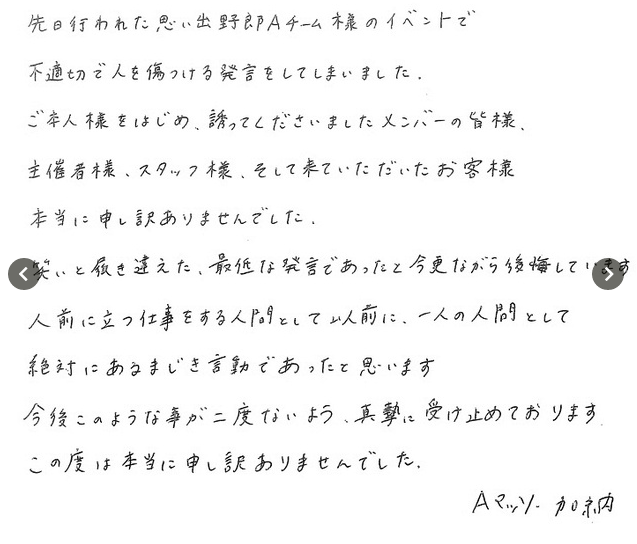 先日行われた思い出野郎Aチーム様のイベントで
不適切で人を傷つける発言をしてしまいました.
ご本人様をはじめ、誘ってくださいましたメンバーの皆様、
主催者様、スタッフ様、そして来ていただいたお客様
本当に申し訳ありませんでした.
笑いと履き違えた、最低な発言であったと今更ながら後悔しています
人前に立つ仕事をする人間として以前に、一人の人間として
絶対にあるまじき言動であったと思います
今後このような事が二度ないよう、真摯に受け止めております.
この度は本当に申し訳ありませんでした.
Aマッソ 加納